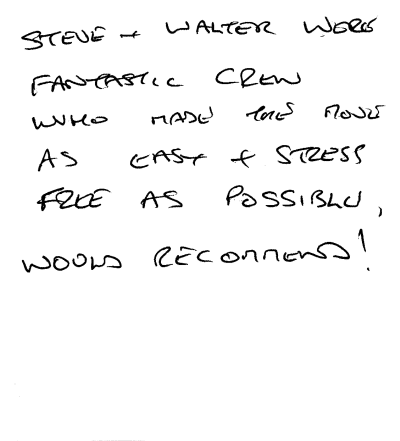 STEVE + WALTER WERE
FANTASTIC CREW
WHO MADE THE MOVE
AS EASY + STRESS
FREE AS POSSIBLE,
WOULD RECOMMEND!